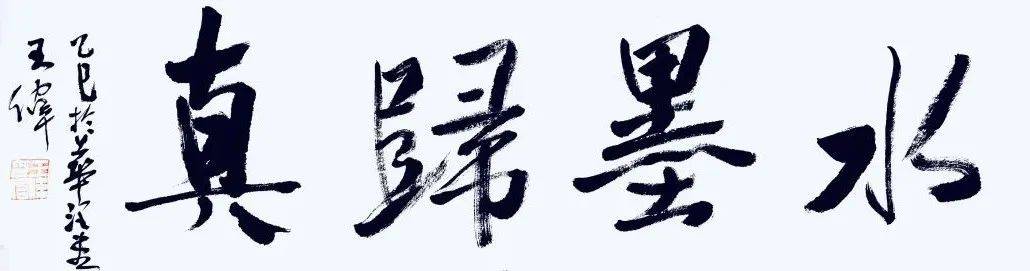 水墨歸真
乙巳於華
王偉